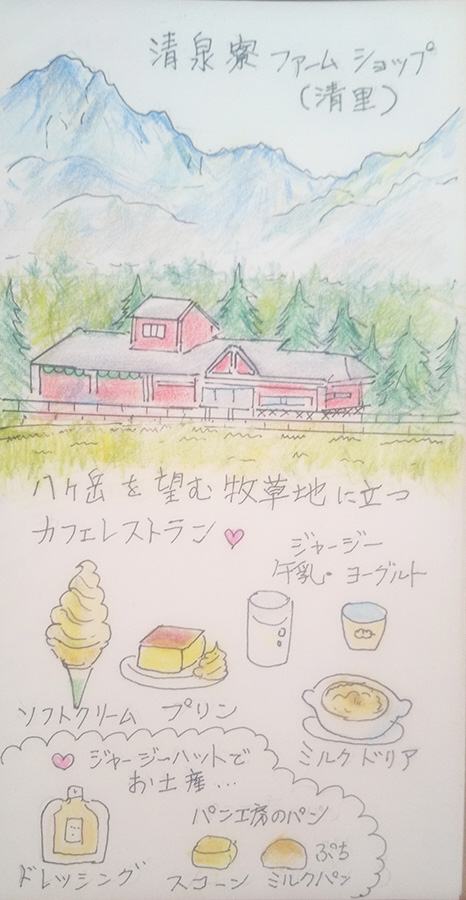 清泉寮ファームショップ
(清里)
八ヶ岳を望む牧草地に立つ
カフェレストラン
ジャージー
牛乳・ヨーグルト
ソフトクリーム
プリン
ミルクドリア
ジャージーハットで
お土産...
パン工房のパン
ドレッシング
スコーン
ぷち
ミルクパン